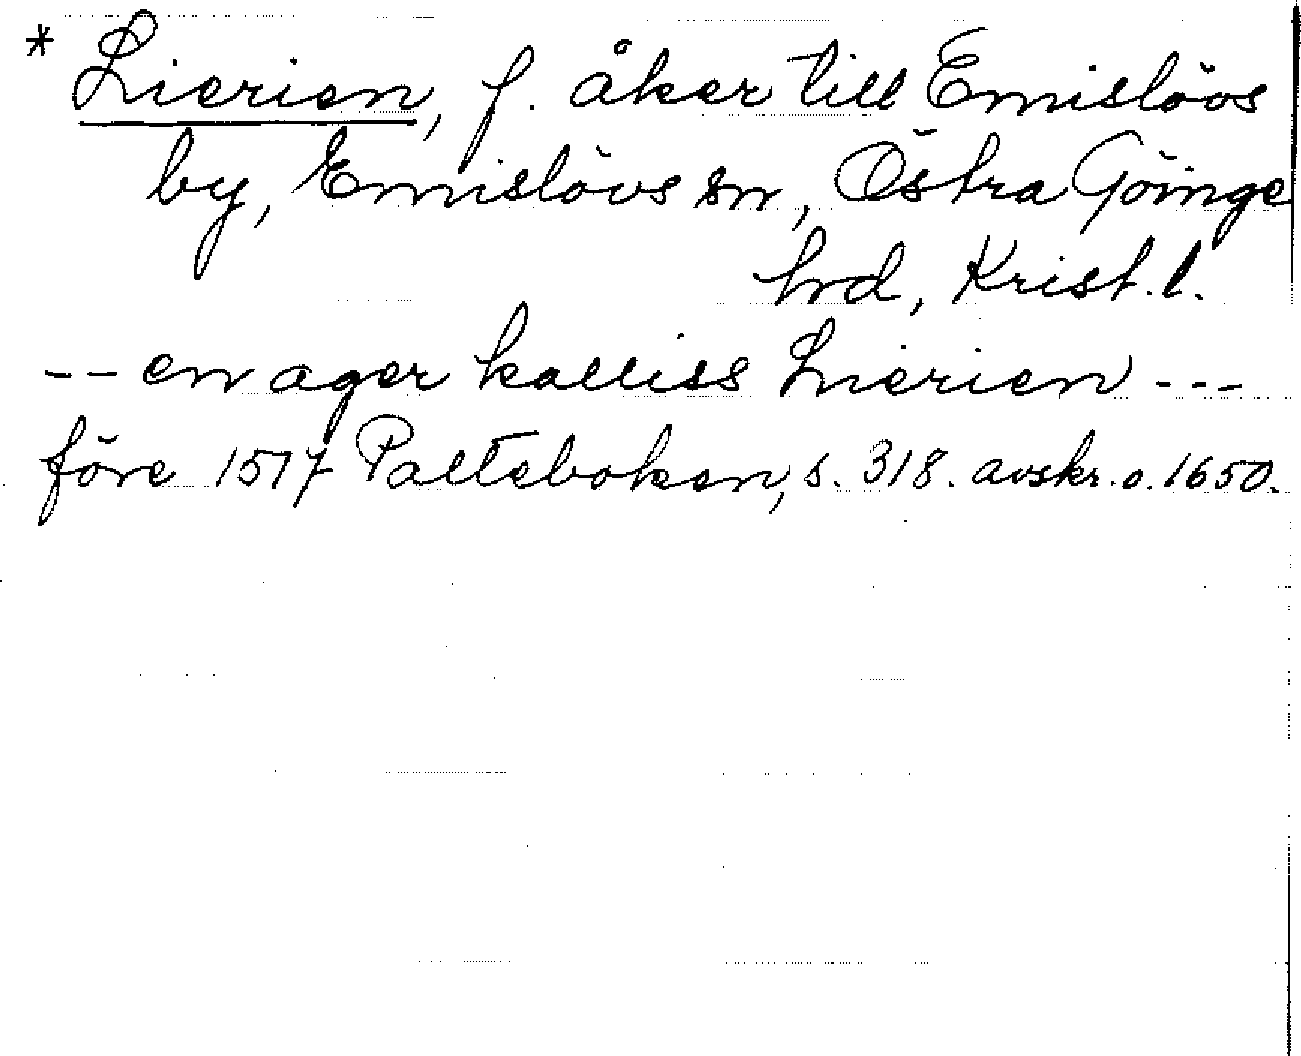 * Lierien, f. åker till Emislövs
by, Emislövs sn, Östra Göinge
hrd, Krist. l.
-- en ager kalliss Lierien ---
före 1517 Palteboken, s. 318. avskr. o. 1650.